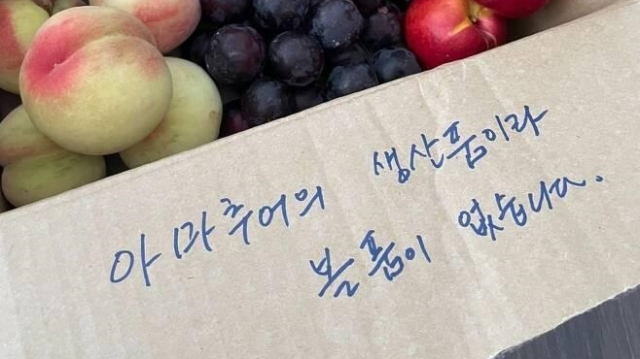 아마추어의 생산품이라
볼품이 없습니다.